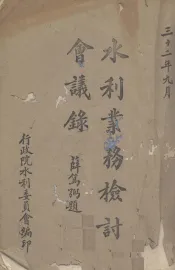 三十二年九月
水利業務檢討
會議錄
薛篤弼題
行政院水利委員會編印